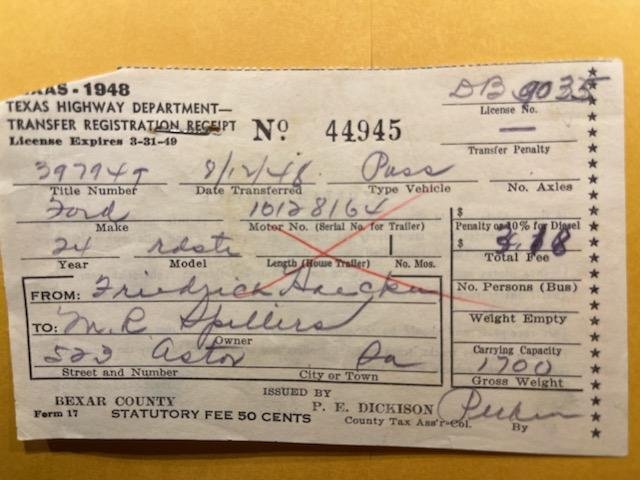 XAS - 1948
TEXAS HIGHWAY DEPARTMENT—
TRANSFER REGISTRATION RECEIPT
License Expires 3-31-49
No 44945
DB 9035
License No.
—
Transfer Penalty
8/12/48 Pass
Title Number Date Transferred Type Vehicle No. Axles
Ford 10128164
Make Motor No. (Serial No. for Trailer)
$
Penalty or 10% for Diesel
24 rdstr
$
Year Model Length (House Trailer) No. Mos.
Total Fee
FROM: Friedrich
No. Persons (Bus)
TO: M. R. Spillers
Owner
Weight Empty
523 Astor
Carrying Capacity
Street and Number City or Town
1700
Gross Weight
BEXAR COUNTY ISSUED BY
P. E. DICKISON
Form 17 STATUTORY FEE 50 CENTS County Tax Ass'r-Col. By